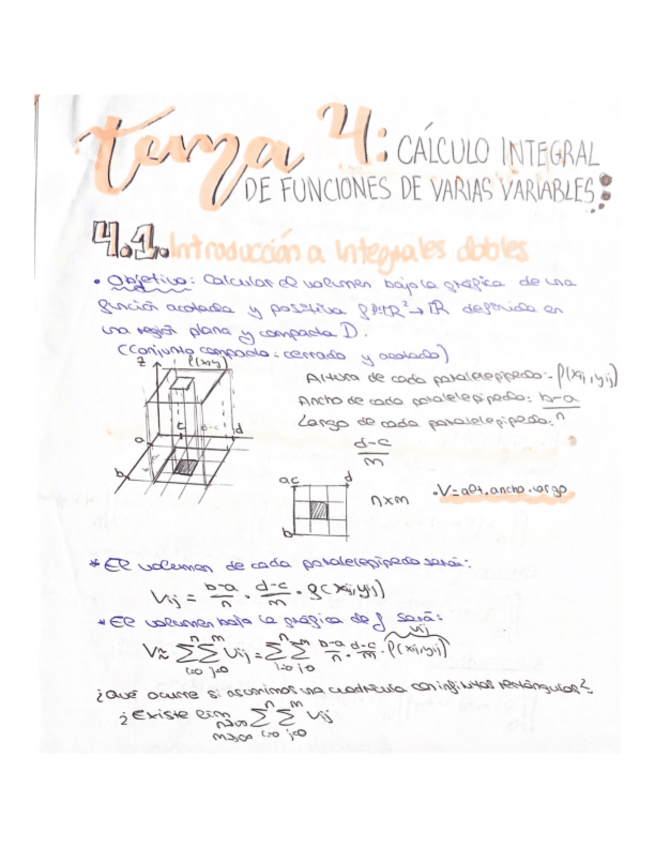 tema 4: CÁLCULO INTEGRAL
DE FUNCIONES DE VARIAS VARIABLES
4.1. Introducción a Integrales dobles
• Objetivo: Calcular el volumen bajo la gráfica de una
función acotada y positiva f: R² → R definida en
una región plana y compacta D.
(Conjunto compacto: cerrado y acotado)
z f(x,y)
Altura de cada paralelepípedo: f(xij, yij)
Ancho de cada paralelepípedo: b-a/n
Largo de cada paralelepípedo:
d-c/m
a c d
b
a c d
b
n×m
· V = alt. ancho. largo
* El volumen de cada paralelepípedo será:
Vij = b-a/n · d-c/m · f(xij, yij)
* El volumen bajo la gráfica de f será:
V ≈ n∑i=0 m∑j=0 Vij = n∑i=0 m∑j=0 b-a/n · d-c/m · f(xij, yij) Vij
¿Qué ocurre si asumimos una cuadrícula con infinitos rectángulos?
¿Existe lim n→∞ m→∞ n∑i=0 m∑j=0 Vij